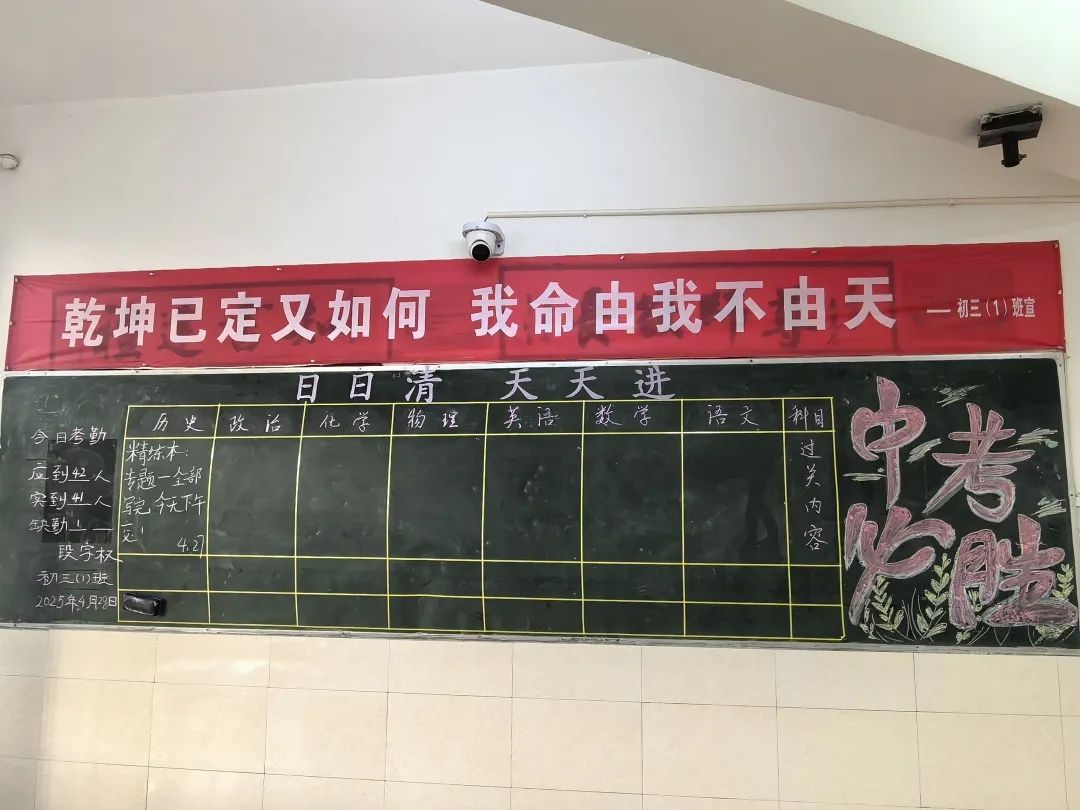 乾坤已定又如何 我命由我不由天 — 初三(1)班宣
日日清 天天进
今日考勤
应到42人
实到41人
缺勤1
段宇权
初三(1)班
2025年4月29日
历史 政治 化学 物理 英语 数学 语文 科目
精练本:
专题一全部
写完 今天下午
交!
4.27
过关内容
中考
必胜